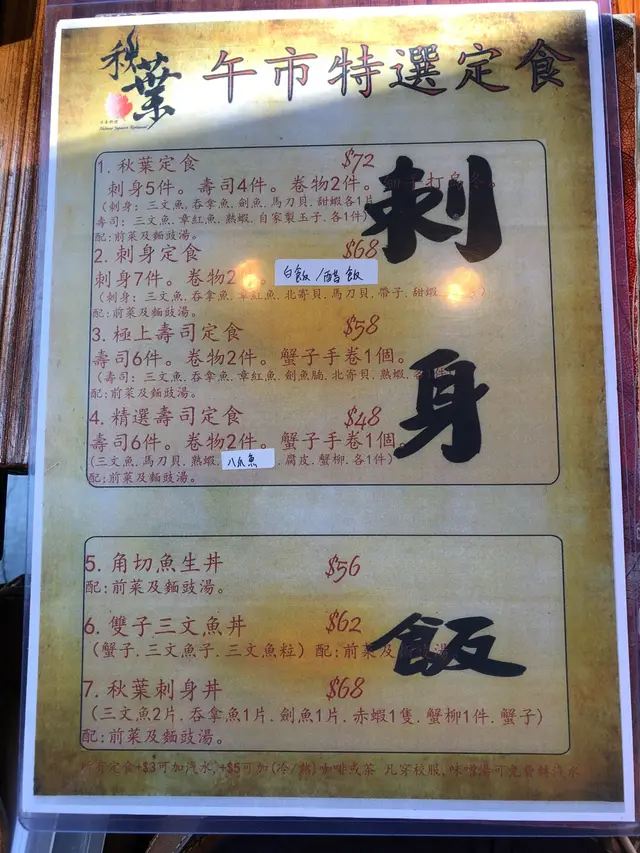 秋葉
午市特選定食
1. 秋葉定食 $72
刺身5件。壽司4件。卷物2件。
(刺身: 三文魚.吞拿魚.劍魚.馬刀貝.甜蝦各1片
壽司: 三文魚.章紅魚.熟蝦.自家製玉子.各1件)
配:前菜及麵豉湯。
2. 刺身定食 $68
刺身7件。卷物2 白飯/醋飯
(刺身: 三文魚.吞拿魚.章紅魚.北寄貝.馬刀貝.帶子.甜蝦.
配:前菜及麵豉湯。
3. 極上壽司定食 $58
壽司6件。卷物2件。蟹子手卷1個。
(壽司: 三文魚.吞拿魚.章紅魚.劍魚腩.北寄貝.熟蝦.各1件)
配:前菜及麵豉湯。
4. 精選壽司定食 $48
壽司6件。卷物2件。蟹子手卷1個。
(三文魚.馬刀貝.熟蝦. 八爪魚 .腐皮.蟹柳.各1件)
配:前菜及麵豉湯。
刺
身
5. 角切魚生丼 $56
配:前菜及麵豉湯。
6. 雙子三文魚丼 $62
(蟹子.三文魚子.三文魚粒) 配:前菜及
7. 秋葉刺身丼 $68
(三文魚2片.吞拿魚1片.劍魚1片.赤蝦1隻.蟹柳1件.蟹子)
配:前菜及麵豉湯。
飯
所有定食+$3可加汽水,+$5可加(冷/熱)咖啡或茶 凡穿校服,味噌湯可免費轉汽水